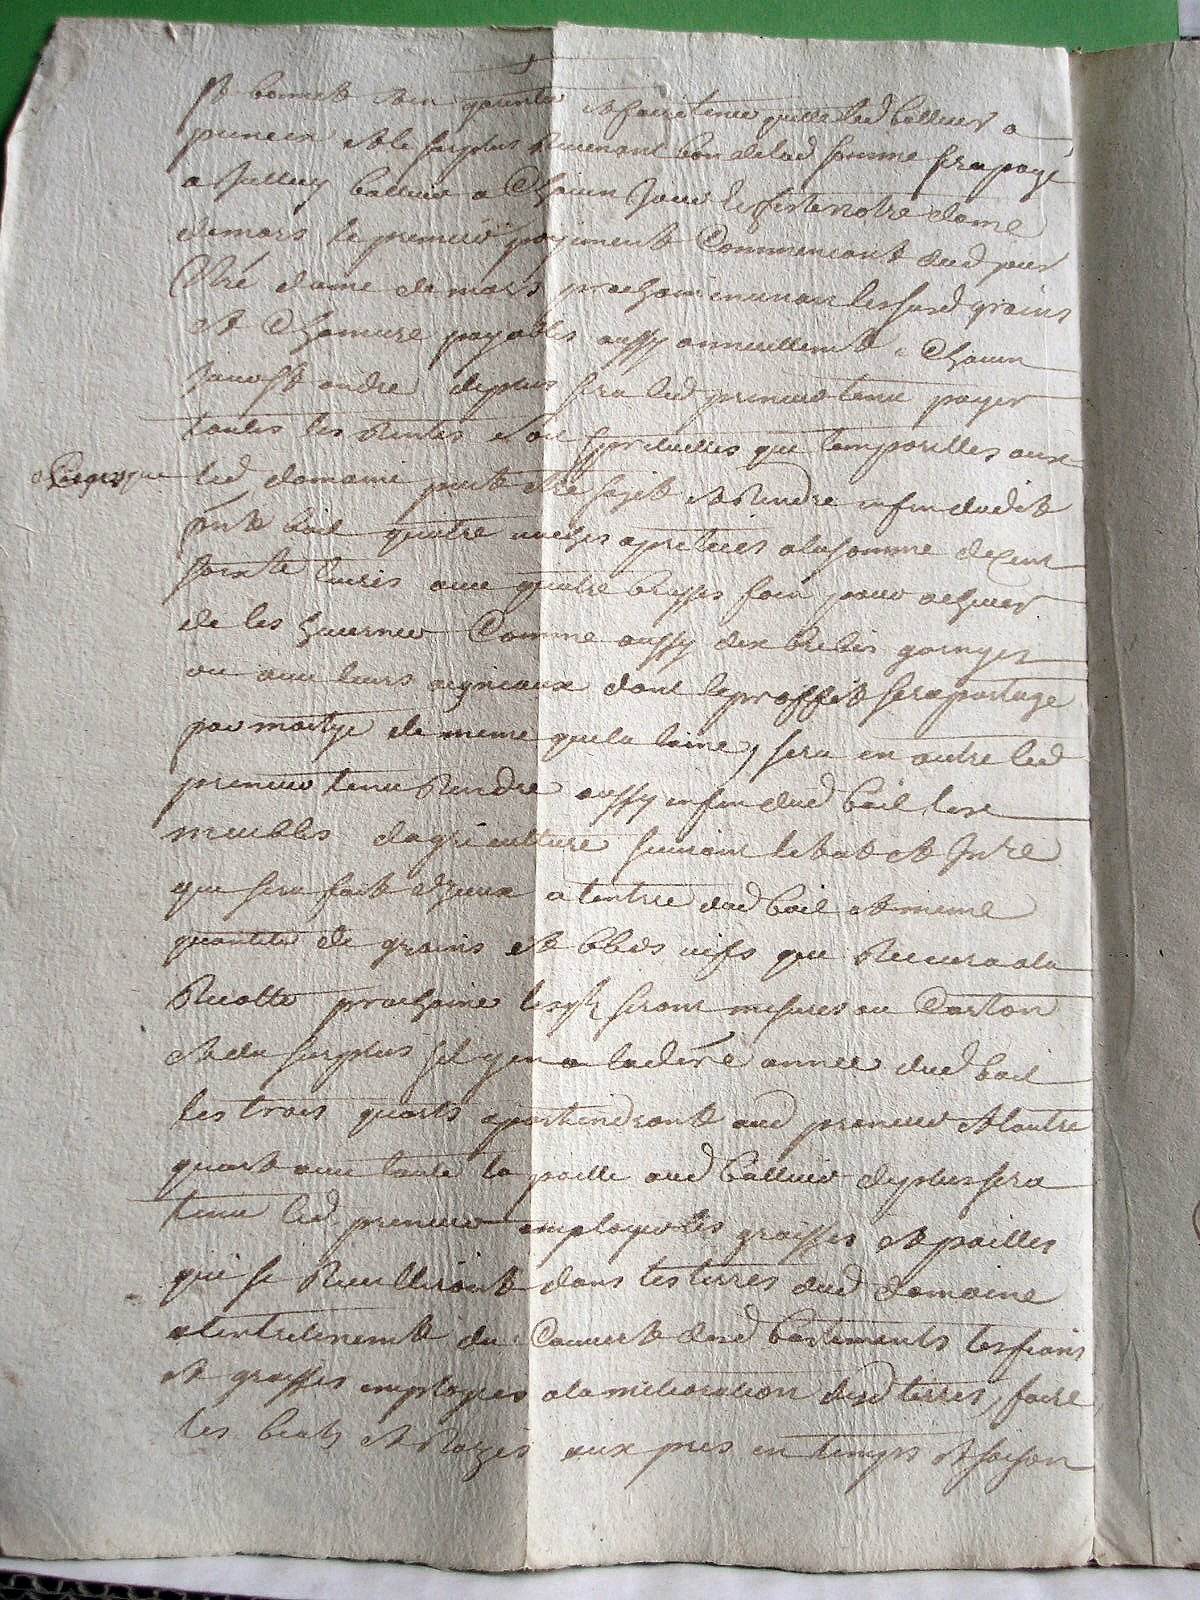 et bon et en quinte et faire tenir quitte led bailleur a
preneur et le surplus revenant bon de lad somme sera payé
a bailleur a Chacun jour de feste notre dame
de mars le premier payement Commencant aud jour
Nre dame de mars prochain venant les susd grains
et Chanvre payables aussy annuellement a Chacun
jour St andre de plus sera led preneur tenu payer
toutes les Rentes soit spirituelles que temporelles aux
led domaine peut etre sujet et Rendre a fin dudit
pnt bail quatre vaches apretiées a la somme de Cent
soixte livres avec quatre brasses foin pour achever
de les hiverner Comme aussy dix brebis garnyes
ou avec leurs agneaux dont le proffit sera partage
par moitye de meme que la laine, sera en outre led
preneur tenu Rendre aussy a fin dud bail les
meubles dagriculture suivant letat et Inre
qui sera fait dyceux a lentrée dud bail et meme
quantite de grains et bleds vifs que Recevra a la
Recolte prochaine lesqls seront mesures au Carton
et du surplus sil y en a la dere année dud bail
les trois quarts apartiendront aud preneur et lautre
quart avec toute la paille aud bailleur de plus sera
tenu led preneur employer les graisses et pailles
qui se Recueilliront dans les terres dud domaine
a lentretenement du Couvert desd bastiments les fians
et graisses employées a la melioration desd terres, faire
les beals et Razes aux pres en temps et saison